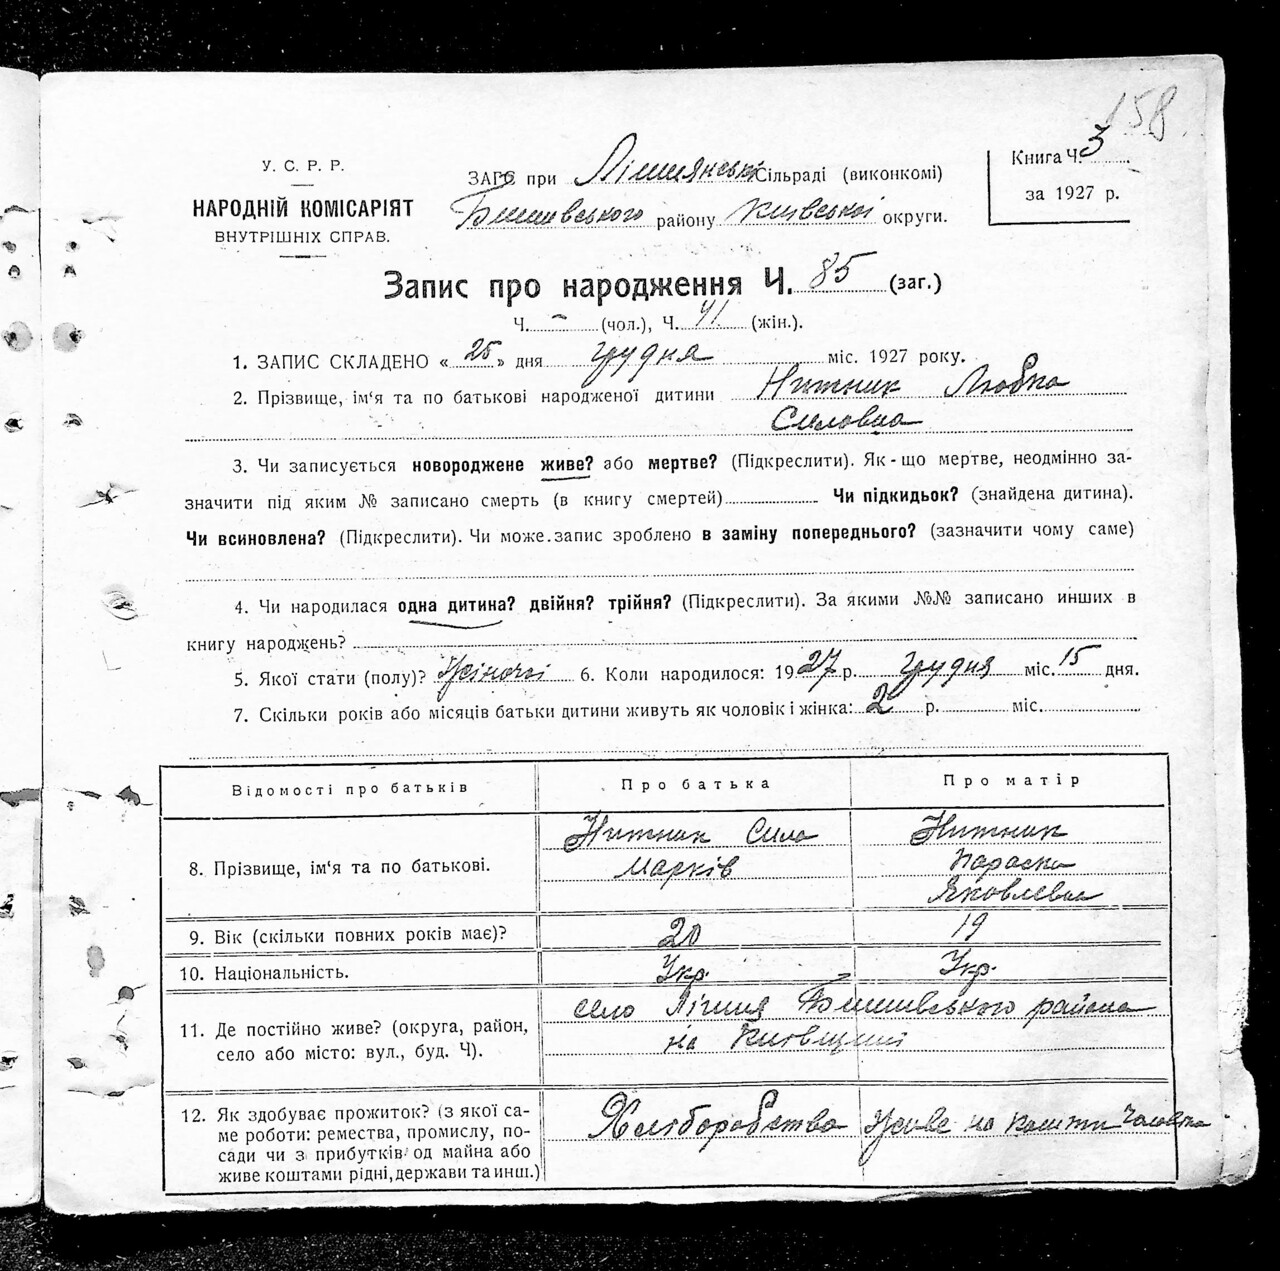 158
У. С. Р. Р.
НАРОДНІЙ КОМІСАРІЯТ
ВНУТРІШНІХ СПРАВ.
ЗАГС при Лішнянські Сільраді (виконкомі)
Бишівського району Київської округи.
Книга Ч. 3
за 1927 р.
Запис про народження Ч. 85 (заг.)
Ч. – (чол.), Ч. 41 (жін.).
1. ЗАПИС СКЛАДЕНО « 25 » дня грудня міс. 1927 року.
2. Прізвище, ім‘я та по батькові народженої дитини Нитник Любка
Силовна
3. Чи записується новороджене живе? або мертве? (Підкреслити). Як-що мертве, неодмінно за-
значити під яким № записано смерть (в книгу смертей) Чи підкидьок? (знайдена дитина).
Чи всиновлена? (Підкреслити). Чи може.запис зроблено в заміну попереднього? (зазначити чому саме)
4. Чи народилася одна дитина? двійня? трійня? (Підкреслити). За якими №№ записано инших в
книгу народжень?
5. Якої стати (полу)? Жіночої 6. Коли народилося: 1927 р. грудня міс. 15 дня.
7. Скільки років або місяців батьки дитини живуть як чоловік і жінка: 2 р. міс.
Відомості про батьків Про батька Про матір
8. Прізвище, ім‘я та по батькові.
Нитник Сила
Марків
Нитник
Параска
Яковлевна
9. Вік (скільки повних років має)? 20 19
10. Національність. Укр. Укр.
11. Де постійно живе? (округа, район,
село або місто: вул., буд. Ч).
село Лішня Бишивського района
на Київщині
12. Як здобуває прожиток? (з якої са-
ме роботи: ремества, промислу, по-
сади чи з прибутків од майна або
живе коштами рідні, держави та инш.)
Хліборобство
Живе на кошти чоловіка